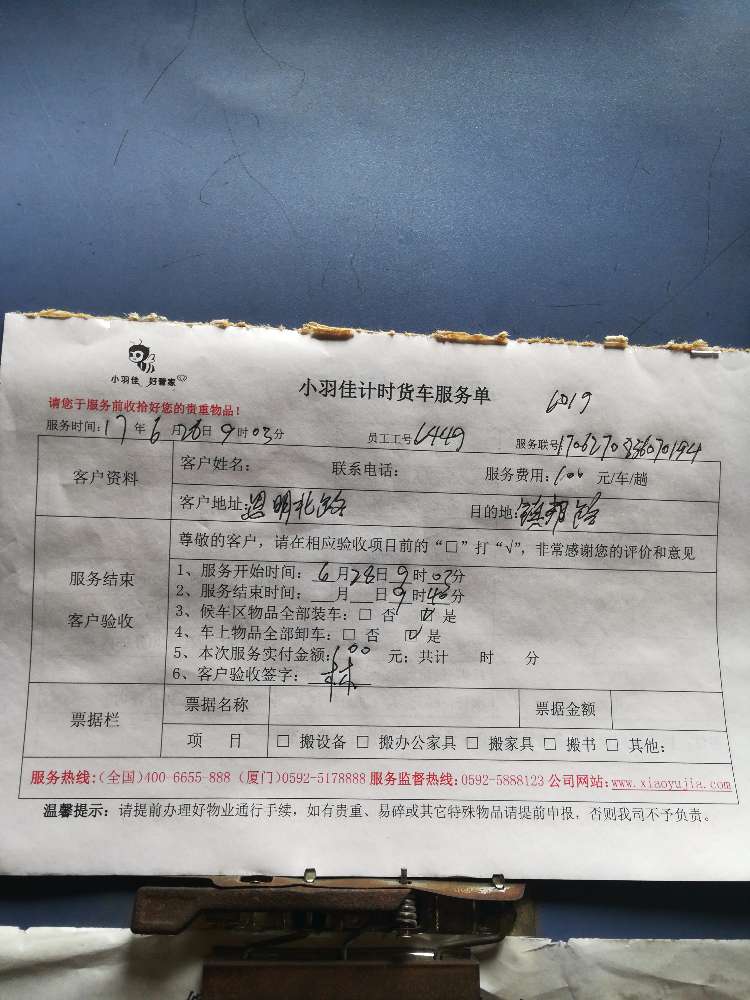 小羽佳 好管家
小羽佳计时货车服务单
6019
请您于服务前收拾好您的贵重物品！
服务时间：17年6月28日9时03分 员工工号6449 服务联号1706270836070194
客户资料
客户姓名： 联系电话： 服务费用：100元/车/趟
客户地址：思明北路 目的地：镇邦路
服务结束
客户验收
尊敬的客户，请在相应验收项目前的“□”打“√”，非常感谢您的评价和意见
1、服务开始时间：6月28日9时03分
2、服务结束时间： 月 日9时40分
3、候车区物品全部装车：□ 否 ☑ 是
4、车上物品全部卸车：□ 否 ☑ 是
5、本次服务实付金额：100 元；共计 时 分
6、客户验收签字：林
票据栏
票据名称 票据金额
项 目 □ 搬设备 □ 搬办公家具 □ 搬家具 □ 搬书 □ 其他：
服务热线：（全国）400-6655-888（厦门）0592-5178888 服务监督热线：0592-5888123 公司网站：www.xiaoyujia.com
温馨提示：请提前办理好物业通行手续，如有贵重、易碎或其它特殊物品请提前申报，否则我司不予负责。